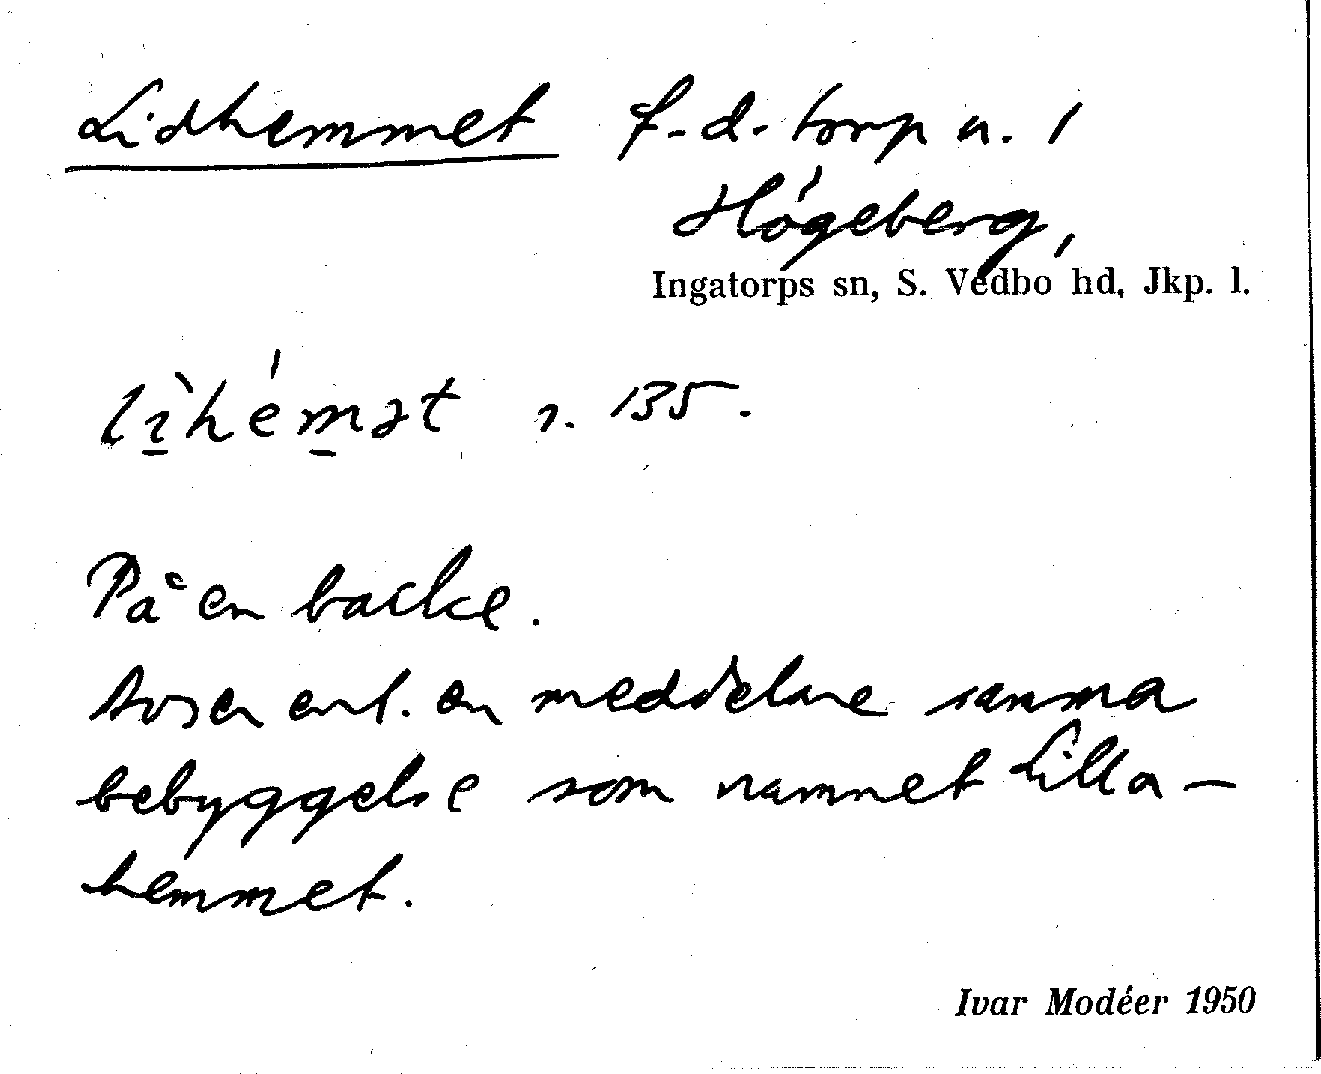 Lidhemmet f.d. torp u. 1
Högeberg,
Ingatorps sn, S. Vedbo hd, Jkp. l.
lìhémət s. 135.
På en backe.
Avser enl. en meddelare samma
bebyggelse som namnet Lilla-
hemmet.
Ivar Modéer 1950